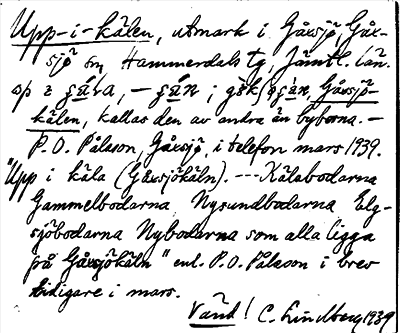 Upp-i-kälen, utmark i Gåxsjö, Gåx-
sjö sn, Hammerdals tg, Jämtl. län.
Gåxsjö-
kälen, kallas den av andra än byborna. –
P.O. Pålsson, Gåxsjö, i telefon mars 1939.
"Upp i käla (Gåxsjökäln). --- Kälabodarna
Gammelbodarna Nysundbodarna Elg-
sjöbodarna Nybodarna som alla ligga
på Gåxsjökäln" enl. P.O. Pålsson i brev
tidigare i mars.
Vänd! C. Lindberg 1939